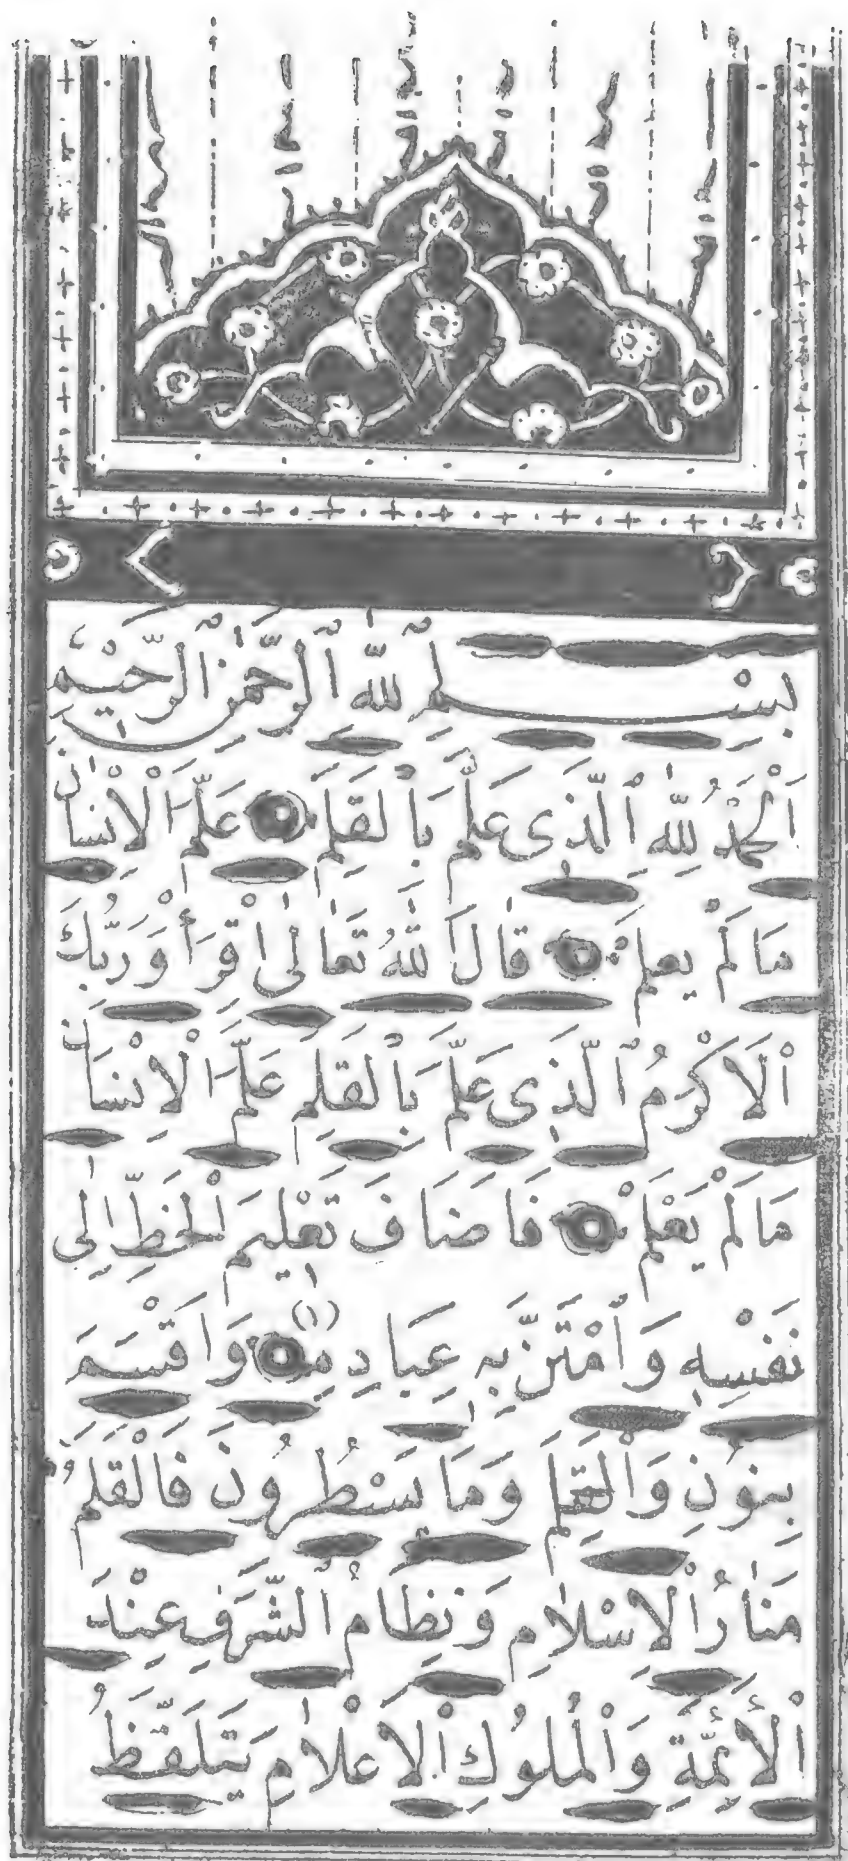 بِسْمِ ٱللَّهِ ٱلرَّحْمٰنِ ٱلرَّحِيمِ
اَلْحَمْدُ لِلّٰهِ ٱلَّذِى عَلَّمَ بِٱلْقَلَمِ عَلَّمَ اَلْاِنْسَانَ
مَا لَمْ يَعْلَمْ قَالَ اللّٰهُ تَعَالٰى اِقْرَأْ وَرَبُّكَ
اْلَاكْرَمُ ٱلَّذِى عَلَّمَ بِٱلْقَلَمِ عَلَّمَ اْلاِنْسَانَ
مَا لَمْ يَعْلَمْ فَاَضَافَ تَعْلِيمَ اْلخَطِّ اِلٰى
نَفْسِهِ وَٱمْتَنَّ بِهِ عَلَى عِبَادِهِ (١) وَاَقْسَمَ
بِنُونِ وَاْلقَلَمِ وَمَا يَسْطُرُونَ فَالْقَلَمُ
مَنَارُ اْلاِسْلَامِ وَنِظَامُ ٱلشَّرَفِ عِنْدَ
اْلأَئِمَّةِ وَاْلمُلُوكِ اْلاَعْلَامِ يَتَلَقَّظُ